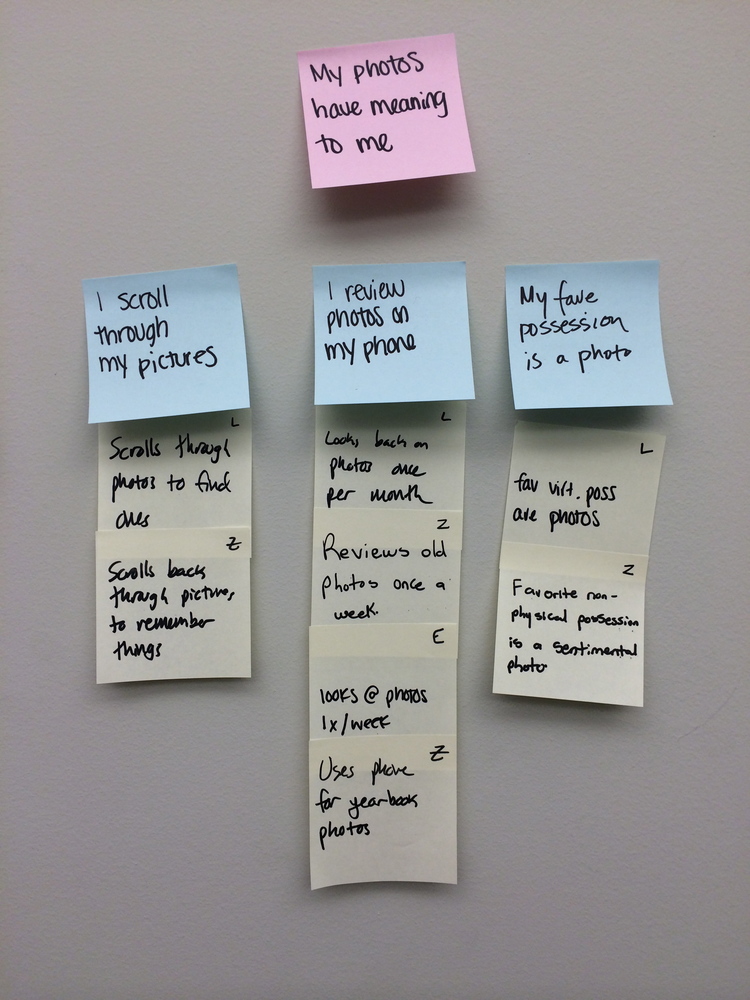 My photos
have meaning
to me
I scroll
through
my pictures
L
Scrolls through
photos to find
ones
Z
Scrolls back
through pictures
to remember
things
I review
photos on
my phone
L
Looks back on
photos once
per month
Z
Reviews old
photos once a
week.
E
looks @ photos
1x/week
Z
Uses phone
for yearbook
photos
My fave
possession
is a photo
L
fav virt. poss
are photos
Z
Favorite non-
physical possession
is a sentimental
photo